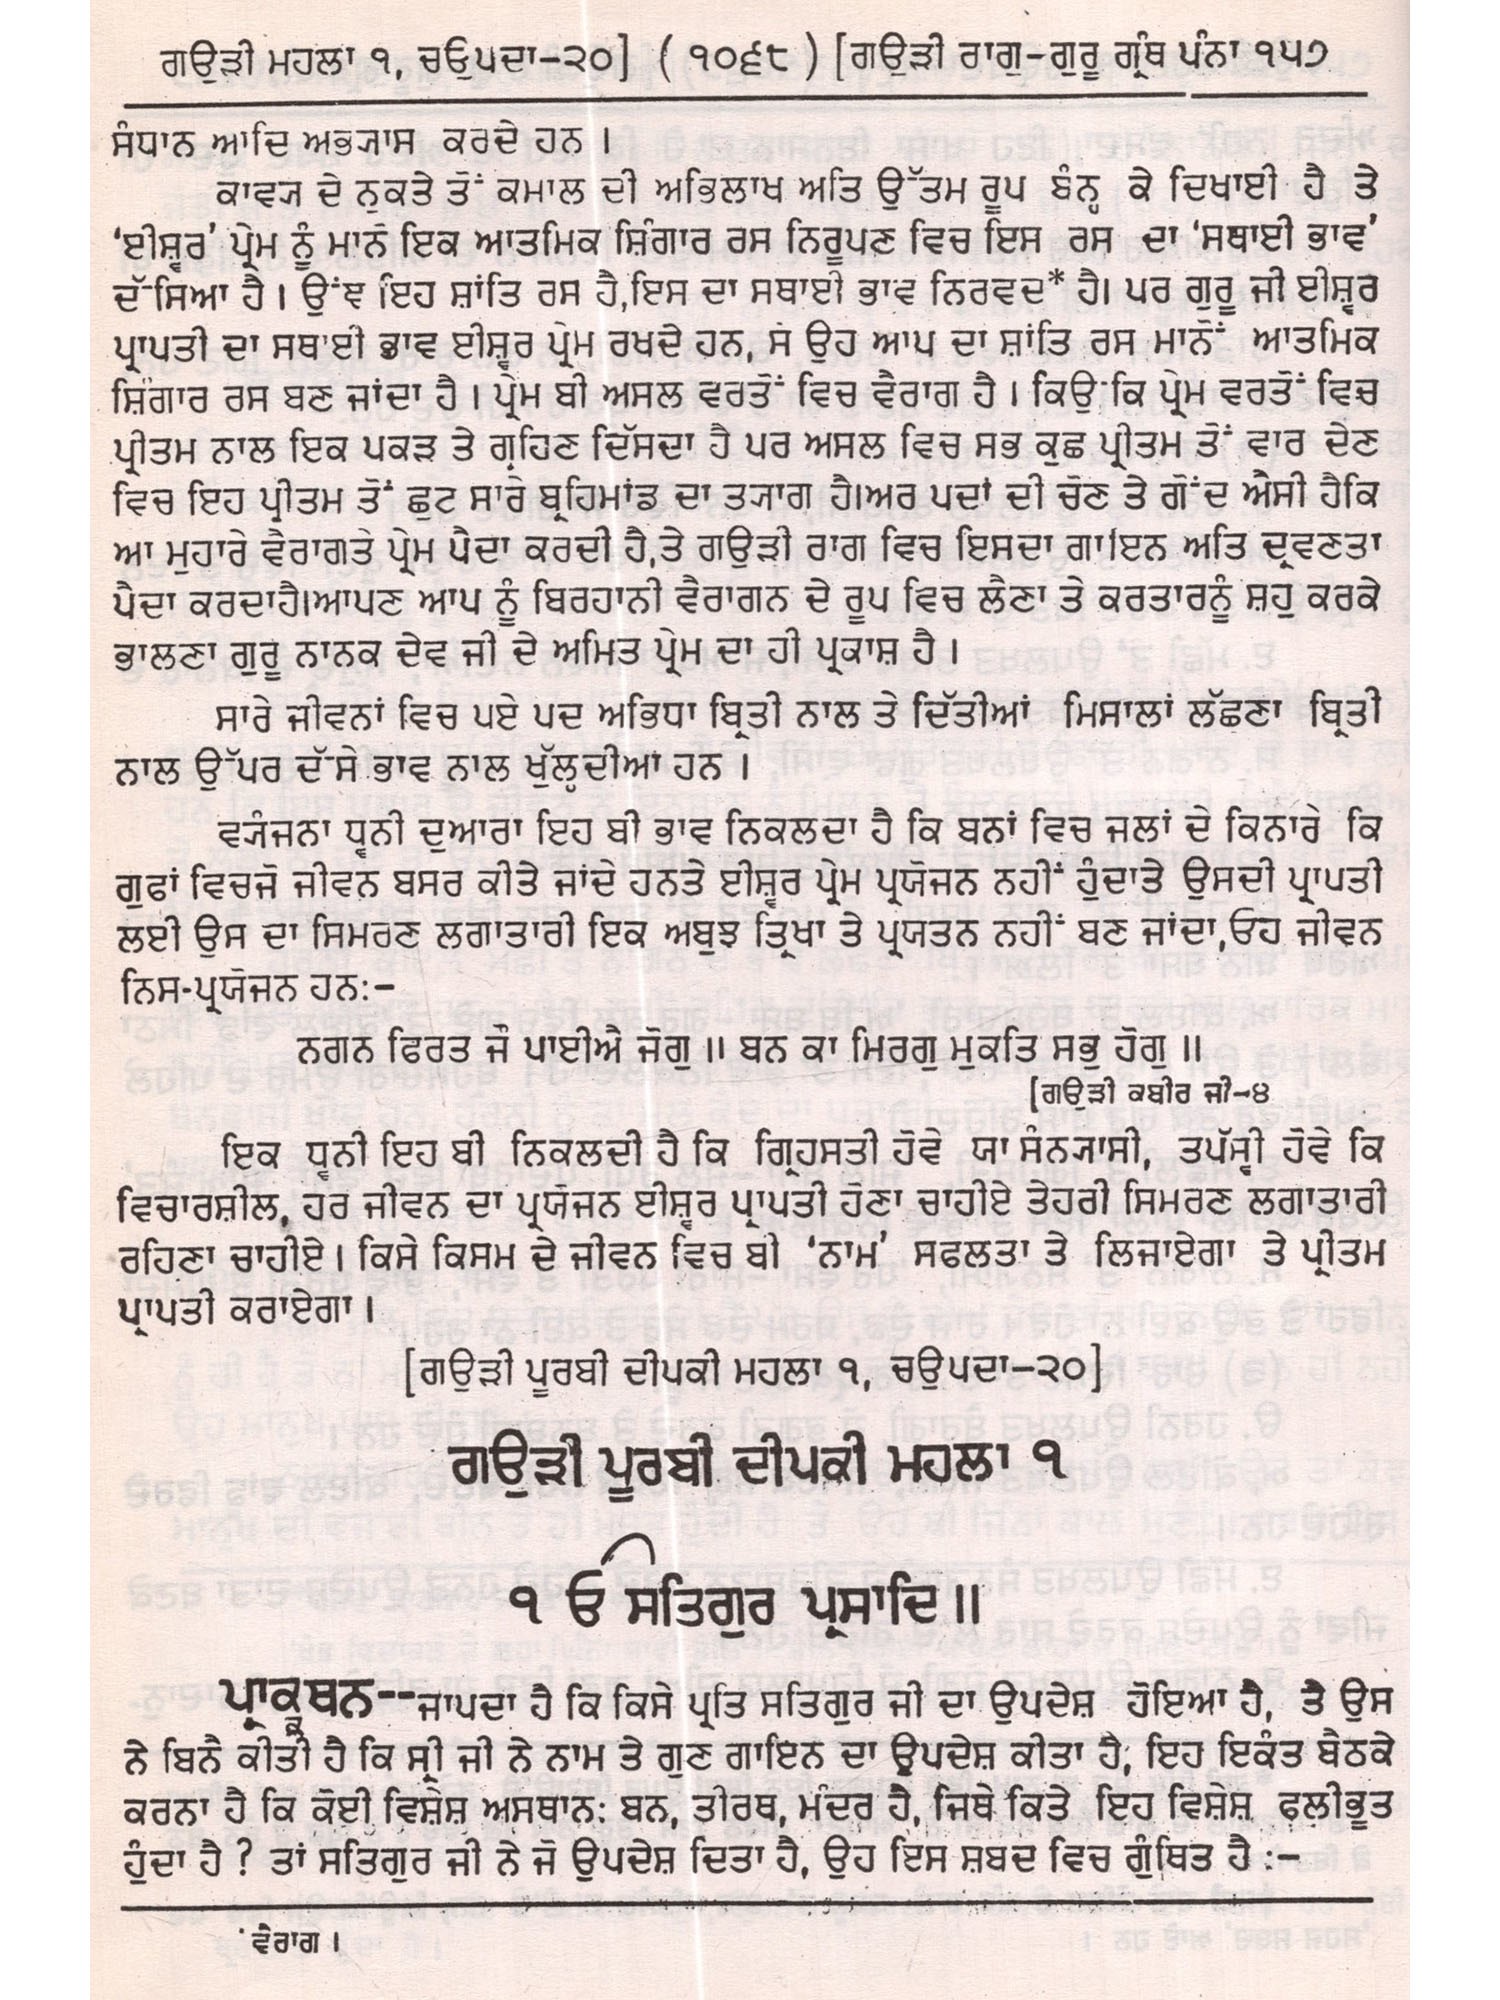 ਗਉੜੀ ਮਹਲਾ ੧, ਚਓੁਪਦਾ-੨੦] ( ੧੦੬੮ ) [ਗਉੜੀ ਰਾਗੁ-ਗੁਰੂ ਗ੍ਰੰਥ ਪੰਨਾ ੧੫੭
ਸੰਧਾਨ ਆਦਿ ਅਭ੍ਯਾਸ ਕਰਦੇ ਹਨ।
ਕਾਵ੍ਯ ਦੇ ਨੁਕਤੇ ਤੋਂ ਕਮਾਲ ਦੀ ਅਭਿਲਾਖ ਅਤਿ ਉੱਤਮ ਰੂਪ ਬੰਨ੍ਹ ਕੇ ਦਿਖਾਈ ਹੈ ਤੇ
‘ਈਸ਼੍ਵਰ’ ਪ੍ਰੇਮ ਨੂੰ ਮਾਨੋ ਇਕ ਆਤਮਿਕ ਸ਼ਿੰਗਾਰ ਰਸ ਨਿਰੂਪਣ ਵਿਚ ਇਸ ਰਸ ਦਾ ‘ਸਥਾਈ ਭਾਵ’
ਦੱਸਿਆ ਹੈ। ਉਂਞ ਇਹ ਸ਼ਾਂਤਿ ਰਸ ਹੈ,ਇਸ ਦਾ ਸਥਾਈ ਭਾਵ ਨਿਰਵਦ* ਹੈ। ਪਰ ਗੁਰੂ ਜੀ ਈਸ਼੍ਵਰ
ਪ੍ਰਾਪਤੀ ਦਾ ਸਥਾਈ ਭਾਵ ਈਸ਼੍ਵਰ ਪ੍ਰੇਮ ਰਖਦੇ ਹਨ, ਸੋ ਉਹ ਆਪ ਦਾ ਸ਼ਾਂਤਿ ਰਸ ਮਾਨੋਂ ਆਤਮਿਕ
ਸ਼ਿੰਗਾਰ ਰਸ ਬਣ ਜਾਂਦਾ ਹੈ। ਪ੍ਰੇਮ ਬੀ ਅਸਲ ਵਰਤੋਂ ਵਿਚ ਵੈਰਾਗ ਹੈ। ਕਿਉਂਕਿ ਪ੍ਰੇਮ ਵਰਤੋਂ ਵਿਚ
ਪ੍ਰੀਤਮ ਨਾਲ ਇਕ ਪਕੜ ਤੇ ਗ੍ਰਹਿਣ ਦਿੱਸਦਾ ਹੈ ਪਰ ਅਸਲ ਵਿਚ ਸਭ ਕੁਛ ਪ੍ਰੀਤਮ ਤੋਂ ਵਾਰ ਦੇਣ
ਵਿਚ ਇਹ ਪ੍ਰੀਤਮ ਤੋਂ ਛੁਟ ਸਾਰੇ ਬ੍ਰਹਿਮਾਂਡ ਦਾ ਤ੍ਯਾਗ ਹੈ।ਅਰ ਪਦਾਂ ਦੀ ਚੋਣ ਤੇ ਗੋਂਦ ਐਸੀ ਹੈਕਿ
ਆ ਮੁਹਾਰੇ ਵੈਰਾਗਤੇ ਪ੍ਰੇਮ ਪੈਦਾ ਕਰਦੀ ਹੈ,ਤੇ ਗਉੜੀ ਰਾਗ ਵਿਚ ਇਸਦਾ ਗਾਇਨ ਅਤਿ ਦ੍ਰਵਣਤਾ
ਪੈਦਾ ਕਰਦਾਹੈ।ਆਪਣ ਆਪ ਨੂੰ ਬਿਰਹਾਨੀ ਵੈਰਾਗਨ ਦੇ ਰੂਪ ਵਿਚ ਲੈਣਾ ਤੇ ਕਰਤਾਰਨੂੰ ਸ਼ਹੁ ਕਰਕੇ
ਭਾਲਣਾ ਗੁਰੂ ਨਾਨਕ ਦੇਵ ਜੀ ਦੇ ਅਮਿਤ ਪ੍ਰੇਮ ਦਾ ਹੀ ਪ੍ਰਕਾਸ਼ ਹੈ।
ਸਾਰੇ ਜੀਵਨਾਂ ਵਿਚ ਪਏ ਪਦ ਅਭਿਧਾ ਬ੍ਰਿਤੀ ਨਾਲ ਤੇ ਦਿੱਤੀਆਂ ਮਿਸਾਲਾਂ ਲੱਛਣਾ ਬ੍ਰਿਤੀ
ਨਾਲ ਉੱਪਰ ਦੱਸੇ ਭਾਵ ਨਾਲ ਖੁੱਲ੍ਹਦੀਆਂ ਹਨ।
ਵ੍ਯੰਜਨਾ ਧ੍ਵਨੀ ਦੁਆਰਾ ਇਹ ਬੀ ਭਾਵ ਨਿਕਲਦਾ ਹੈ ਕਿ ਬਨਾਂ ਵਿਚ ਜਲਾਂ ਦੇ ਕਿਨਾਰੇ ਕਿ
ਗੁਫਾਂ ਵਿਚਜੋ ਜੀਵਨ ਬਸਰ ਕੀਤੇ ਜਾਂਦੇ ਹਨਤੇ ਈਸ਼੍ਵਰ ਪ੍ਰੇਮ ਪ੍ਰਯੋਜਨ ਨਹੀਂ ਹੁੰਦਾਤੇ ਉਸਦੀ ਪ੍ਰਾਪਤੀ
ਲਈ ਉਸ ਦਾ ਸਿਮਰਣ ਲਗਾਤਾਰੀ ਇਕ ਅਬੁਝ ਤ੍ਰਿਖਾ ਤੇ ਪ੍ਰਯਤਨ ਨਹੀਂ ਬਣ ਜਾਂਦਾ,ਓਹ ਜੀਵਨ
ਨਿਸ-ਪ੍ਰਯੋਜਨ ਹਨ:-
ਨਗਨ ਫਿਰਤ ਜੌ ਪਾਈਐ ਜੋਗੁ॥ ਬਨ ਕਾ ਮਿਰਗੁ ਮੁਕਤਿ ਸਭੁ ਹੋਗੁ॥
[ਗਉੜੀ ਕਬੀਰ ਜੀ-੪
ਇਕ ਧ੍ਵਨੀ ਇਹ ਬੀ ਨਿਕਲਦੀ ਹੈ ਕਿ ਗ੍ਰਿਹਸਤੀ ਹੋਵੇ ਯਾ ਸੰਨ੍ਯਾਸੀ, ਤਪੱਸ੍ਵੀ ਹੋਵੇ ਕਿ
ਵਿਚਾਰਸ਼ੀਲ, ਹਰ ਜੀਵਨ ਦਾ ਪ੍ਰਯੋਜਨ ਈਸ਼੍ਵਰ ਪ੍ਰਾਪਤੀ ਹੋਣਾ ਚਾਹੀਏ ਤੇਹਰੀ ਸਿਮਰਣ ਲਗਾਤਾਰੀ
ਰਹਿਣਾ ਚਾਹੀਏ। ਕਿਸੇ ਕਿਸਮ ਦੇ ਜੀਵਨ ਵਿਚ ਬੀ ‘ਨਾਮ’ ਸਫਲਤਾ ਤੇ ਲਿਜਾਏਗਾ ਤੇ ਪ੍ਰੀਤਮ
ਪ੍ਰਾਪਤੀ ਕਰਾਏਗਾ।
[ਗਉੜੀ ਪੂਰਬੀ ਦੀਪਕੀ ਮਹਲਾ ੧, ਚਉਪਦਾ-੨੦]
ਗਉੜੀ ਪੂਰਬੀ ਦੀਪਕੀ ਮਹਲਾ ੧
ੴ ਸਤਿਗੁਰ ਪ੍ਰਸਾਦਿ॥
ਪ੍ਰਾਕ੍ਕਥਨ--ਜਾਪਦਾ ਹੈ ਕਿ ਕਿਸੇ ਪ੍ਰਤਿ ਸਤਿਗੁਰ ਜੀ ਦਾ ਉਪਦੇਸ਼ ਹੋਇਆ ਹੈ, ਤੈ ਉਸ
ਨੇ ਬਿਨੈ ਕੀਤੀ ਹੈ ਕਿ ਸ੍ਰੀ ਜੀ ਨੇ ਨਾਮ ਤੇ ਗੁਣ ਗਾਇਨ ਦਾ ਉਪਦੇਸ਼ ਕੀਤਾ ਹੈ, ਇਹ ਇਕੰਤ ਬੈਠਕੇ
ਕਰਨਾ ਹੈ ਕਿ ਕੋਈ ਵਿਸ਼ੇਸ਼ ਅਸਥਾਨ: ਬਨ, ਤੀਰਥ, ਮੰਦਰ ਹੈ, ਜਿਥੇ ਕਿਤੇ ਇਹ ਵਿਸ਼ੇਸ਼ ਫਲੀਭੂਤ
ਹੁੰਦਾ ਹੈ? ਤਾਂ ਸਤਿਗੁਰ ਜੀ ਨੇ ਜੋ ਉਪਦੇਸ਼ ਦਿਤਾ ਹੈ, ਉਹ ਇਸ ਸ਼ਬਦ ਵਿਚ ਗੁੰਥਿਤ ਹੈ:-
* ਵੈਰਾਗ।